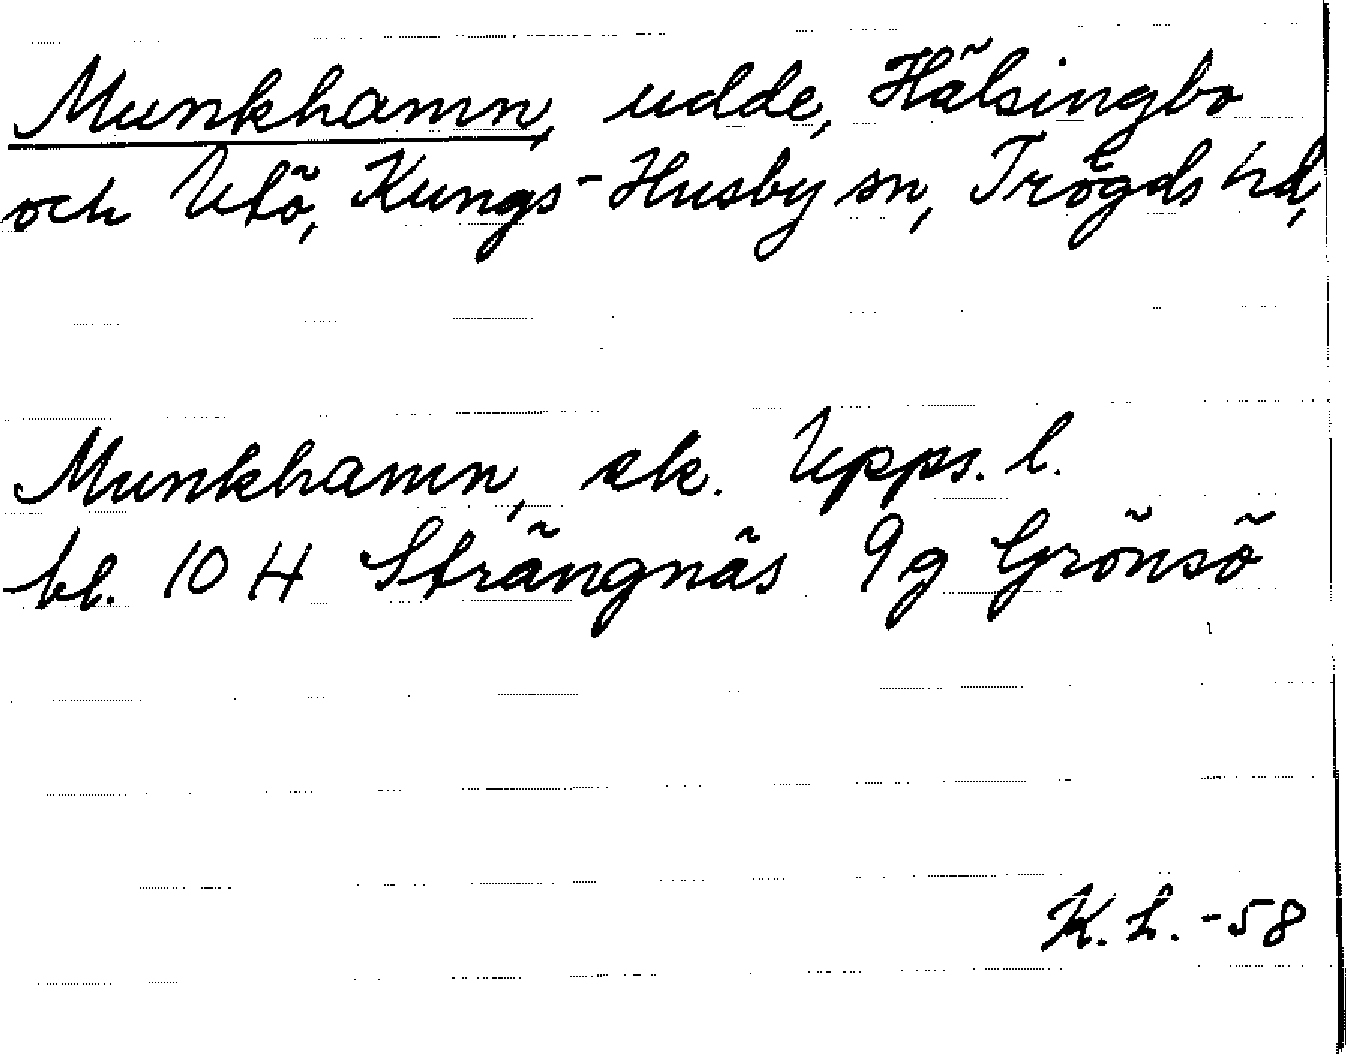 Munkhamn, udde, Hälsingbo
och Utö, Kungs-Husby sn, Trögds hd,
Munkhamn, ek. Upps. l.
bl. 10 H Strängnäs 9g Grönsö
K. L. -58